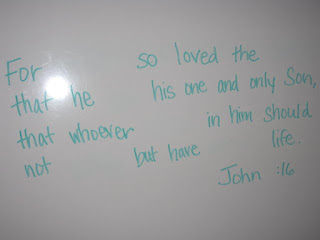 For so loved the
that he his one and only Son,
that whoever in him should
not but have life.
John :16